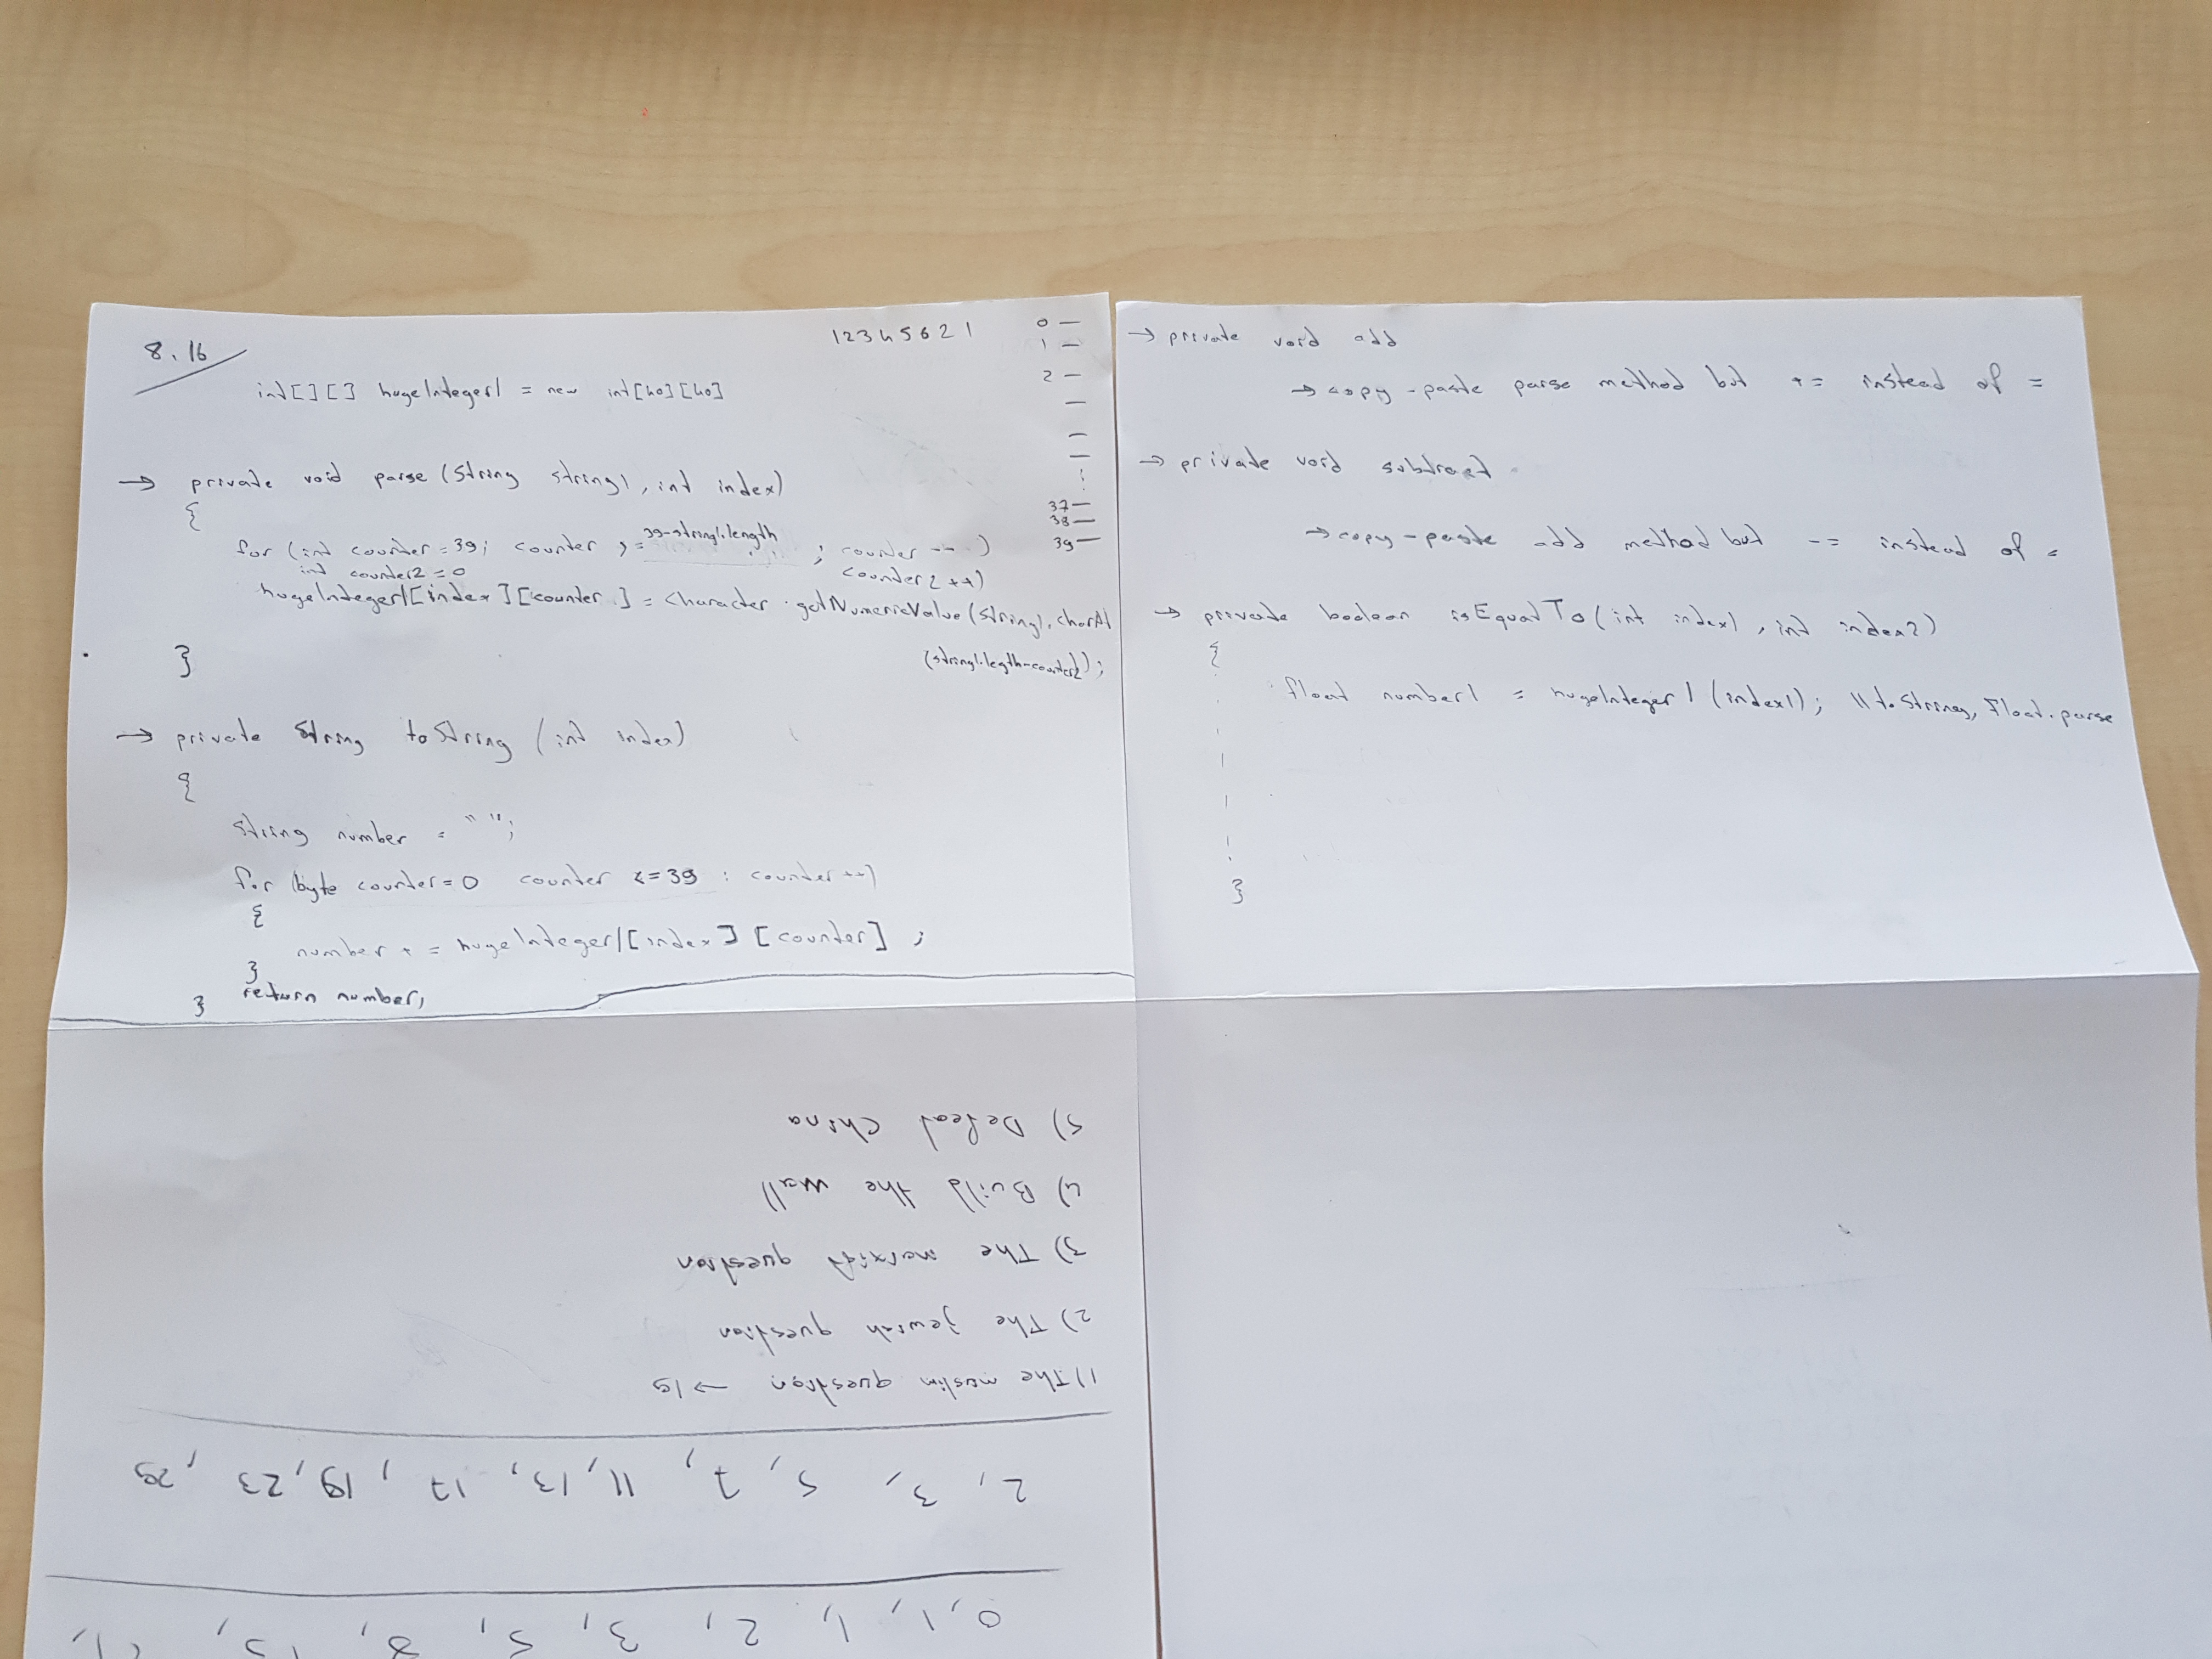 8.16
12345621
int[][] hugeInteger1 = new int[40][40]
0 —
1 —
2 —
37 —
38 —
39 —
→ private void parse (String string1, int index)
{
for (int counter = 39; counter >= 39-string1.length ; counter -- )
int counter2 = 0 counter2 ++)
hugeInteger1[index][counter] = Character.getNumericValue(string1.charAt
(string1.legth-counter2);
}
→ private String toString (int index)
{
String number = "";
for (byte counter=0 counter <=39 ; counter++)
{
number += hugeInteger1[index] [counter] ;
}
return number;
}
→ private void add
→ copy-paste parse method but += instead of =
→ private void subtract
→ copy-paste add method but -= instead of =
→ private boolean isEqualTo (int index1, int index2)
{
float number1 = hugeInteger1 (index1); // toString, Float.parse
}
0, 1, 1, 2, 3, 5, 8, 13, 21,
2, 3, 5, 7, 11, 13, 17, 19, 23, 29
1) The muslim question → 19
2) The jewish question
3) The marxist question
4) Build the wall
5) Defeat China